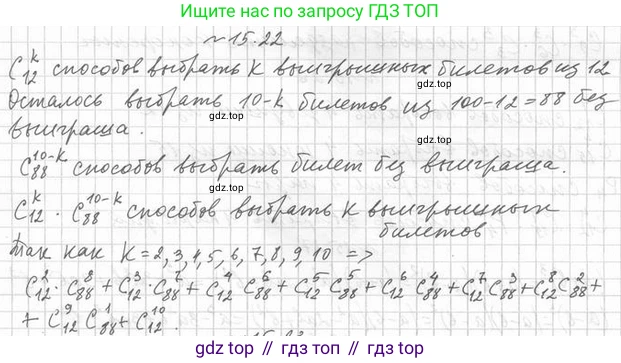 Ищите нас по запросу ГДЗ ТОП
№ 15.22
C₁₂ᵏ способов выбрать K выигрышных билетов из 12
gdz.top
Осталось выбрать 10-k билетов из 100-12=88 без
gdz.top gdz.top
выигрыша.
C₈₈¹⁰⁻ᵏ способов выбрать билет без выигрыша.
gdz.top
C₁₂ᵏ · C₈₈¹⁰⁻ᵏ способов выбрать K выигрышных
билетов
gdz.top gdz.top
Так как K=2,3,4,5,6,7,8,9,10 =>
gdz.top
C₁₂²·C₈₈⁸+C₁₂³·C₈₈⁷+C₁₂⁴ C₈₈⁶+C₁₂⁵C₈₈⁵+C₁₂⁶ C₈₈⁴+C₁₂⁷C₈₈³+C₁₂⁸C₈₈²+
+ C₁₂⁹C₈₈¹+C₁₂¹⁰.
gdz.top
gdz.top // гдз топ // гдз.top